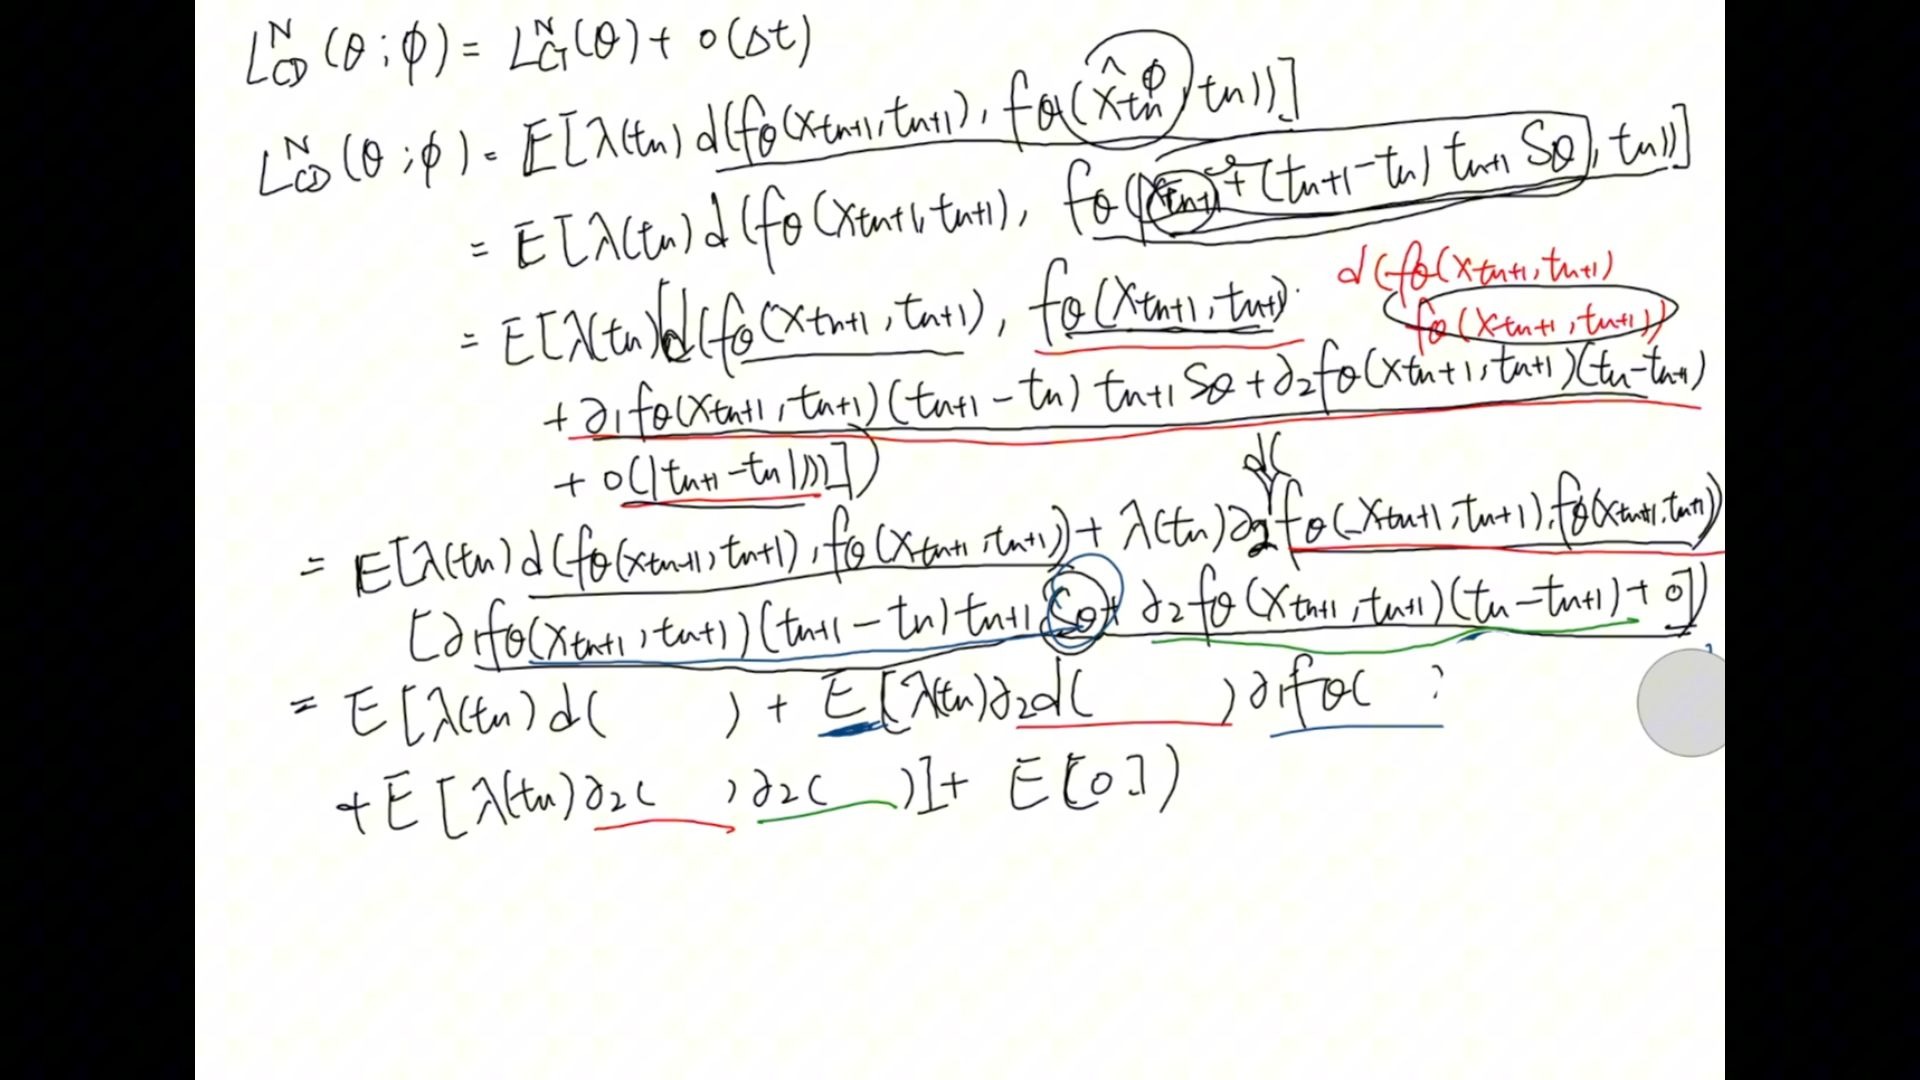 L_CD^N (θ ; ϕ) = L_CT^N (θ) + o(Δt)
L_CD^N (θ ; ϕ) = E[λ(tn) d(fθ(xtn+1, tn+1), fθ(x̂tn^ϕ, tn))]
= E[λ(tn) d(fθ(xtn+1, tn+1), fθ(xtn+1 + (tn+1 - tn) tn+1 Sθ, tn))]
d(fθ(xtn+1, tn+1)
= E[λ(tn) d(fθ(xtn+1, tn+1), fθ(xtn+1, tn+1)
fθ(xtn+1, tn+1))
+ ∂1fθ(xtn+1, tn+1)(tn+1 - tn) tn+1 Sθ + ∂2fθ(xtn+1, tn+1)(tn - tn+1)
+ o(|tn+1 - tn|))])
d(
= E[λ(tn) d(fθ(xtn+1, tn+1), fθ(xtn+1, tn+1)) + λ(tn) ∂2 fθ(xtn+1, tn+1), fθ(xtn+1, tn+1))
[∂1fθ(xtn+1, tn+1)(tn+1 - tn) tn+1 Sθ + ∂2fθ(xtn+1, tn+1)(tn - tn+1) + o])
= E[λ(tn) d( ) + E[λ(tn) ∂2d( ) ∂1fθ( )
+ E[λ(tn) ∂2( ) ∂2( )] + E[o])